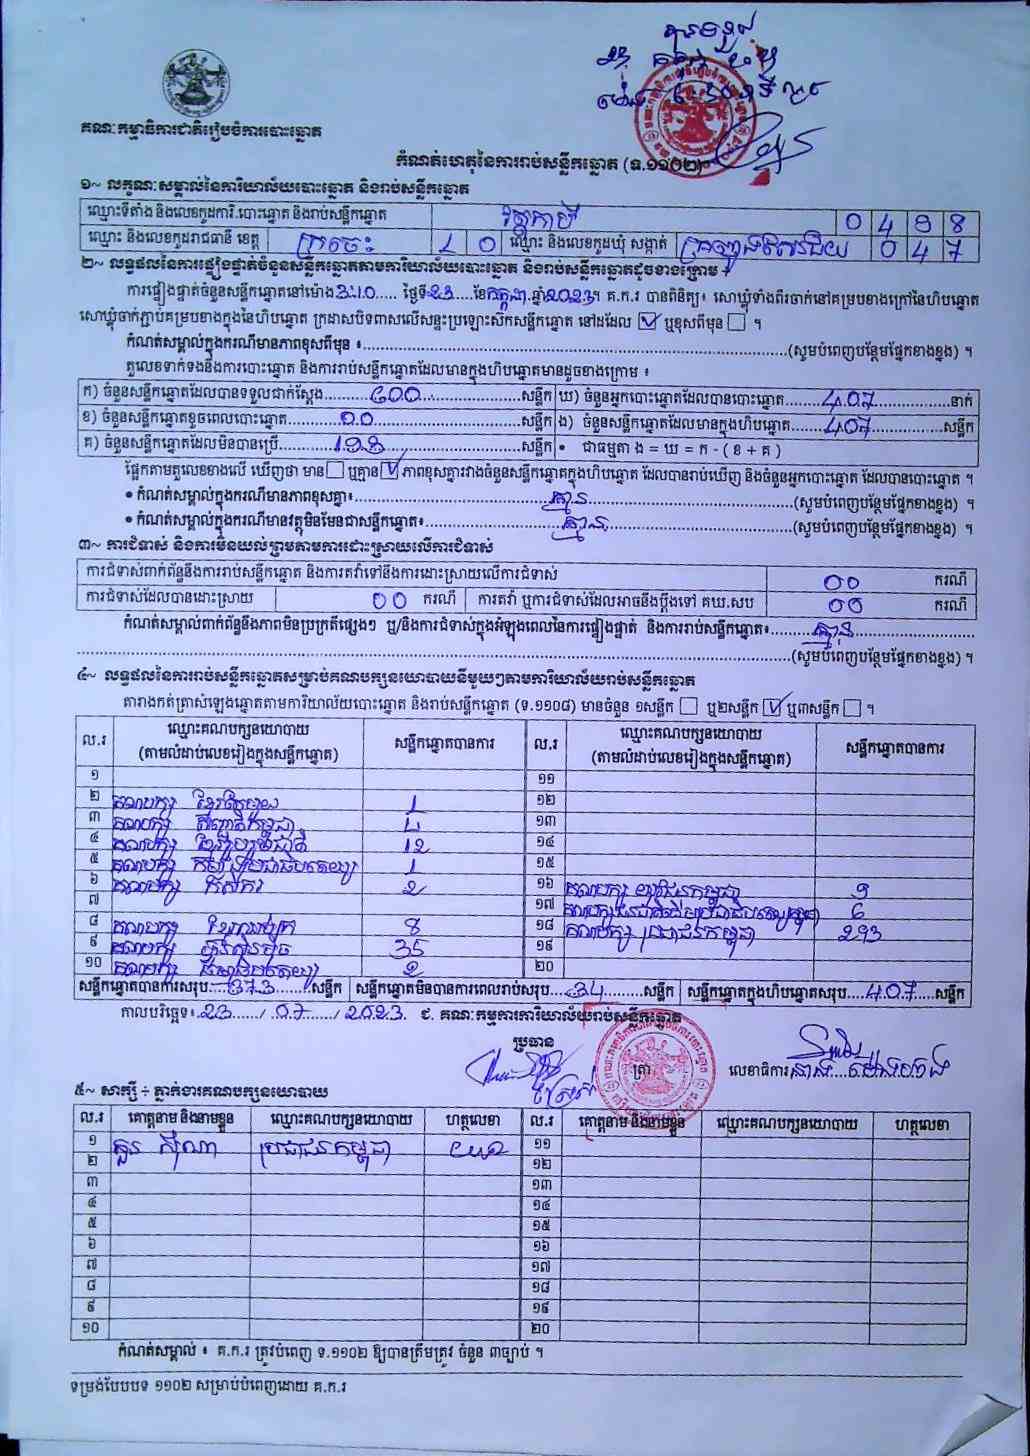 គណៈកម្មាធិការជាតិរៀបចំការបោះឆ្នោត
កំណត់ហេតុនៃការរាប់សន្លឹកឆ្នោត (ទ.១១០២)
១~ លក្ខណៈសម្គាល់នៃការិយាល័យបោះឆ្នោត និងរាប់សន្លឹកឆ្នោត
ឈ្មោះទីតាំង និងលេខកូដការិ.បោះឆ្នោត និងរាប់សន្លឹកឆ្នោត 0 4 9 8
ឈ្មោះ និងលេខកូដរាជធានី ខេត្ត ក្រចេះ 1 0 ឈ្មោះ និងលេខកូដឃុំ សង្កាត់ 0 4 7
២~ លទ្ធផលនៃការផ្ទៀងផ្ទាត់ចំនួនសន្លឹកឆ្នោតតាមការិយាល័យបោះឆ្នោត និងរាប់សន្លឹកឆ្នោតដូចខាងក្រោម ÷
ការផ្ទៀងផ្ទាត់ចំនួនសន្លឹកឆ្នោតនៅម៉ោង 3:10 ថ្ងៃទី 23 ខែ កក្កដា ឆ្នាំ 2023។ គ.ក.រ បានពិនិត្យ៖ សោឃ្លុំទាំងពីរចាក់នៅគម្របខាងក្រៅនៃហិបឆ្នោត
សោឃ្លុំចាក់ភ្ជាប់គម្របខាងក្នុងនៃហិបឆ្នោត ក្រដាសបិទពាសលើសន្ទះប្រឡោះសិកសន្លឹកឆ្នោត នៅដដែល ☑ ឬខុសពីមុន ☐ ។
កំណត់សម្គាល់ក្នុងករណីមានភាពខុសពីមុន ៖ (សូមបំពេញបន្ថែមផ្នែកខាងខ្នង) ។
តួលេខទាក់ទងនឹងការបោះឆ្នោត និងការរាប់សន្លឹកឆ្នោតដែលមានក្នុងហិបឆ្នោតមានដូចខាងក្រោម ៖
ក) ចំនួនសន្លឹកឆ្នោតដែលបានទទួលជាក់ស្តែង 600 សន្លឹក ឃ) ចំនួនអ្នកបោះឆ្នោតដែលបានបោះឆ្នោត 407 នាក់
ខ) ចំនួនសន្លឹកឆ្នោតខូចពេលបោះឆ្នោត 00 សន្លឹក ង) ចំនួនសន្លឹកឆ្នោតដែលមានក្នុងហិបឆ្នោត 407 សន្លឹក
គ) ចំនួនសន្លឹកឆ្នោតដែលមិនបានប្រើ 193 សន្លឹក • ជាធម្មតា ង = ឃ = ក - ( ខ + គ )
ផ្អែកតាមតួលេខខាងលើ ឃើញថា មាន ☐ ឬគ្មាន ☑ ភាពខុសគ្នារវាងចំនួនសន្លឹកឆ្នោតក្នុងហិបឆ្នោត ដែលបានរាប់ឃើញ និងចំនួនអ្នកបោះឆ្នោត ដែលបានបោះឆ្នោត ។
• កំណត់សម្គាល់ក្នុងករណីមានភាពខុសគ្នា៖ គ្មាន (សូមបំពេញបន្ថែមផ្នែកខាងខ្នង) ។
• កំណត់សម្គាល់ក្នុងករណីមានវត្ថុមិនមែនជាសន្លឹកឆ្នោត៖ គ្មាន (សូមបំពេញបន្ថែមផ្នែកខាងខ្នង) ។
៣~ ការជំទាស់ និងការមិនយល់ព្រមតាមការដោះស្រាយលើការជំទាស់
ការជំទាស់ពាក់ព័ន្ធនឹងការរាប់សន្លឹកឆ្នោត និងការតវ៉ាទៅនឹងការដោះស្រាយលើការជំទាស់ 00 ករណី
ការជំទាស់ដែលបានដោះស្រាយ 00 ករណី ការតវ៉ា ឬការជំទាស់ដែលអាចនឹងប្តឹងទៅ គឃ.សប 00 ករណី
កំណត់សម្គាល់ពាក់ព័ន្ធនឹងភាពមិនប្រក្រតីផ្សេងៗ ឬ/និងការជំទាស់ក្នុងអំឡុងពេលនៃការផ្ទៀងផ្ទាត់ និងការរាប់សន្លឹកឆ្នោត៖ គ្មាន
(សូមបំពេញបន្ថែមផ្នែកខាងខ្នង) ។
៤~ លទ្ធផលនៃការរាប់សន្លឹកឆ្នោតសម្រាប់គណបក្សនយោបាយនីមួយៗតាមការិយាល័យរាប់សន្លឹកឆ្នោត
តារាងកត់ត្រាសំឡេងឆ្នោតតាមការិយាល័យបោះឆ្នោត និងរាប់សន្លឹកឆ្នោត (ទ.១១០៨) មានចំនួន ១សន្លឹក ☐ ឬ២សន្លឹក ☑ ឬ៣សន្លឹក ☐ ។
ល.រ ឈ្មោះគណបក្សនយោបាយ (តាមលំដាប់លេខរៀងក្នុងសន្លឹកឆ្នោត) សន្លឹកឆ្នោតបានការ ល.រ ឈ្មោះគណបក្សនយោបាយ (តាមលំដាប់លេខរៀងក្នុងសន្លឹកឆ្នោត) សន្លឹកឆ្នោតបានការ
១ ១១
២ គណបក្ស ខ្មែរតែមួយ 1 ១២
៣ គណបក្ស 1 ១៣
៤ គណបក្ស ខ្មែររួបរួមជាតិ 12 ១៤
៥ គណបក្ស 1 ១៥
៦ គណបក្ស កសិករ 2 ១៦ គណបក្ស យុវជនកម្ពុជា 9
៧ ១៧ 6
៨ គណបក្ស ខ្មែរ 8 ១៨ គណបក្ស ប្រជាជនកម្ពុជា 293
៩ គណបក្ស ហ្វ៊ុនស៊ិនប៉ិច 35 ១៩
១០ គណបក្ស 2 ២០
សន្លឹកឆ្នោតបានការសរុប 373 សន្លឹក សន្លឹកឆ្នោតមិនបានការពេលរាប់សរុប 34 សន្លឹក សន្លឹកឆ្នោតក្នុងហិបឆ្នោតសរុប 407 សន្លឹក
កាលបរិច្ឆេទ៖ 23 / 07 / 2023 ជ. គណៈកម្មការការិយាល័យរាប់សន្លឹកឆ្នោត
ប្រធាន
ត្រា លេខាធិការ
៥~ សាក្សី ÷ ភ្នាក់ងារគណបក្សនយោបាយ
ល.រ គោត្តនាម និងនាមខ្លួន ឈ្មោះគណបក្សនយោបាយ ហត្ថលេខា ល.រ គោត្តនាម និងនាមខ្លួន ឈ្មោះគណបក្សនយោបាយ ហត្ថលេខា
១ គួន ស៊ីណា ប្រជាជនកម្ពុជា ១១
២ ១២
៣ ១៣
៤ ១៤
៥ ១៥
៦ ១៦
៧ ១៧
៨ ១៨
៩ ១៩
១០ ២០
កំណត់សម្គាល់ ៖ គ.ក.រ ត្រូវបំពេញ ទ.១១០២ ឱ្យបានត្រឹមត្រូវ ចំនួន ៣ច្បាប់ ។
ទម្រង់បែបបទ ១១០២ សម្រាប់បំពេញដោយ គ.ក.រ